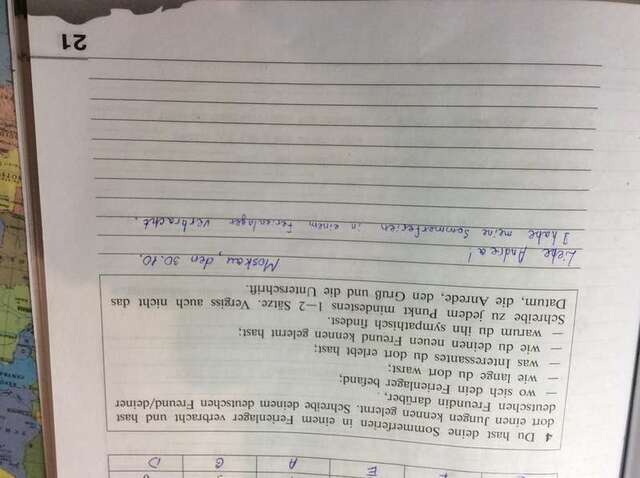 E A D
4 Du hast deine Sommerferien in einem Ferienlager verbracht und hast
dort einen Jungen kennen gelernt. Schreibe deinem deutschen Freund/deiner
deutschen Freundin darüber,
— wo sich dein Ferienlager befand;
— wie lange du dort warst;
— was Interessantes du dort erlebt hast;
— wie du deinen neuen Freund kennen gelernt hast;
— warum du ihn sympathisch findest.
Schreibe zu jedem Punkt mindestens 1—2 Sätze. Vergiss auch nicht das
Datum, die Anrede, den Gruß und die Unterschrift.
Moskau, den 30.10.
Liebe Andrea!
I habe meine Sommerferien in einem Ferienlager verbracht.
21